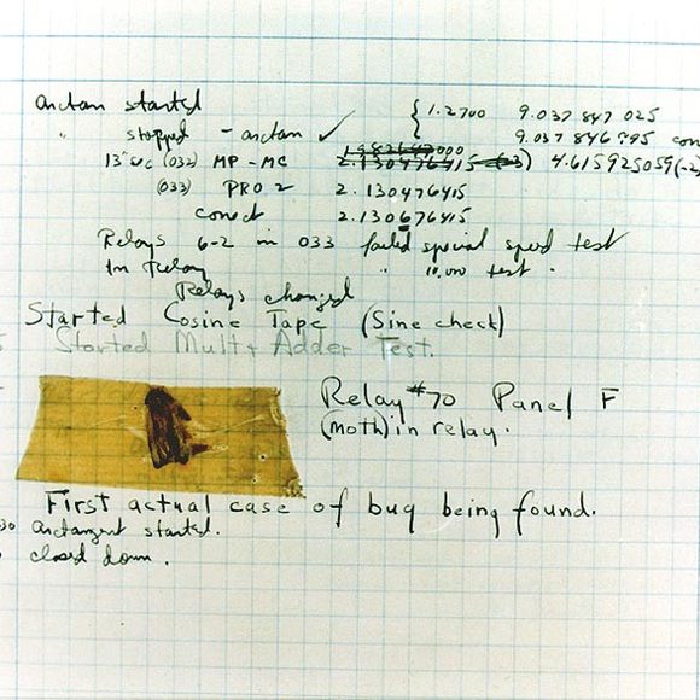 arctan started { 1.2700 9.037 847 025
" stopped - arctan ✓ 9.037 846 795 con
13" uc (032) MP - MC 1.982647000 2.130476415 (-3) 4.615925059(-2)
(033) PRO 2 2.130476415
conect 2.130676415
Relays 6-2 in 033 failed special speed test
In Relay " 11,000 test .
Relays changed
Started Cosine Tape (Sine check)
Started Mult + Adder Test.
Relay #70 Panel F
(moth) in relay.
First actual case of bug being found.
arctangent started.
closed down .